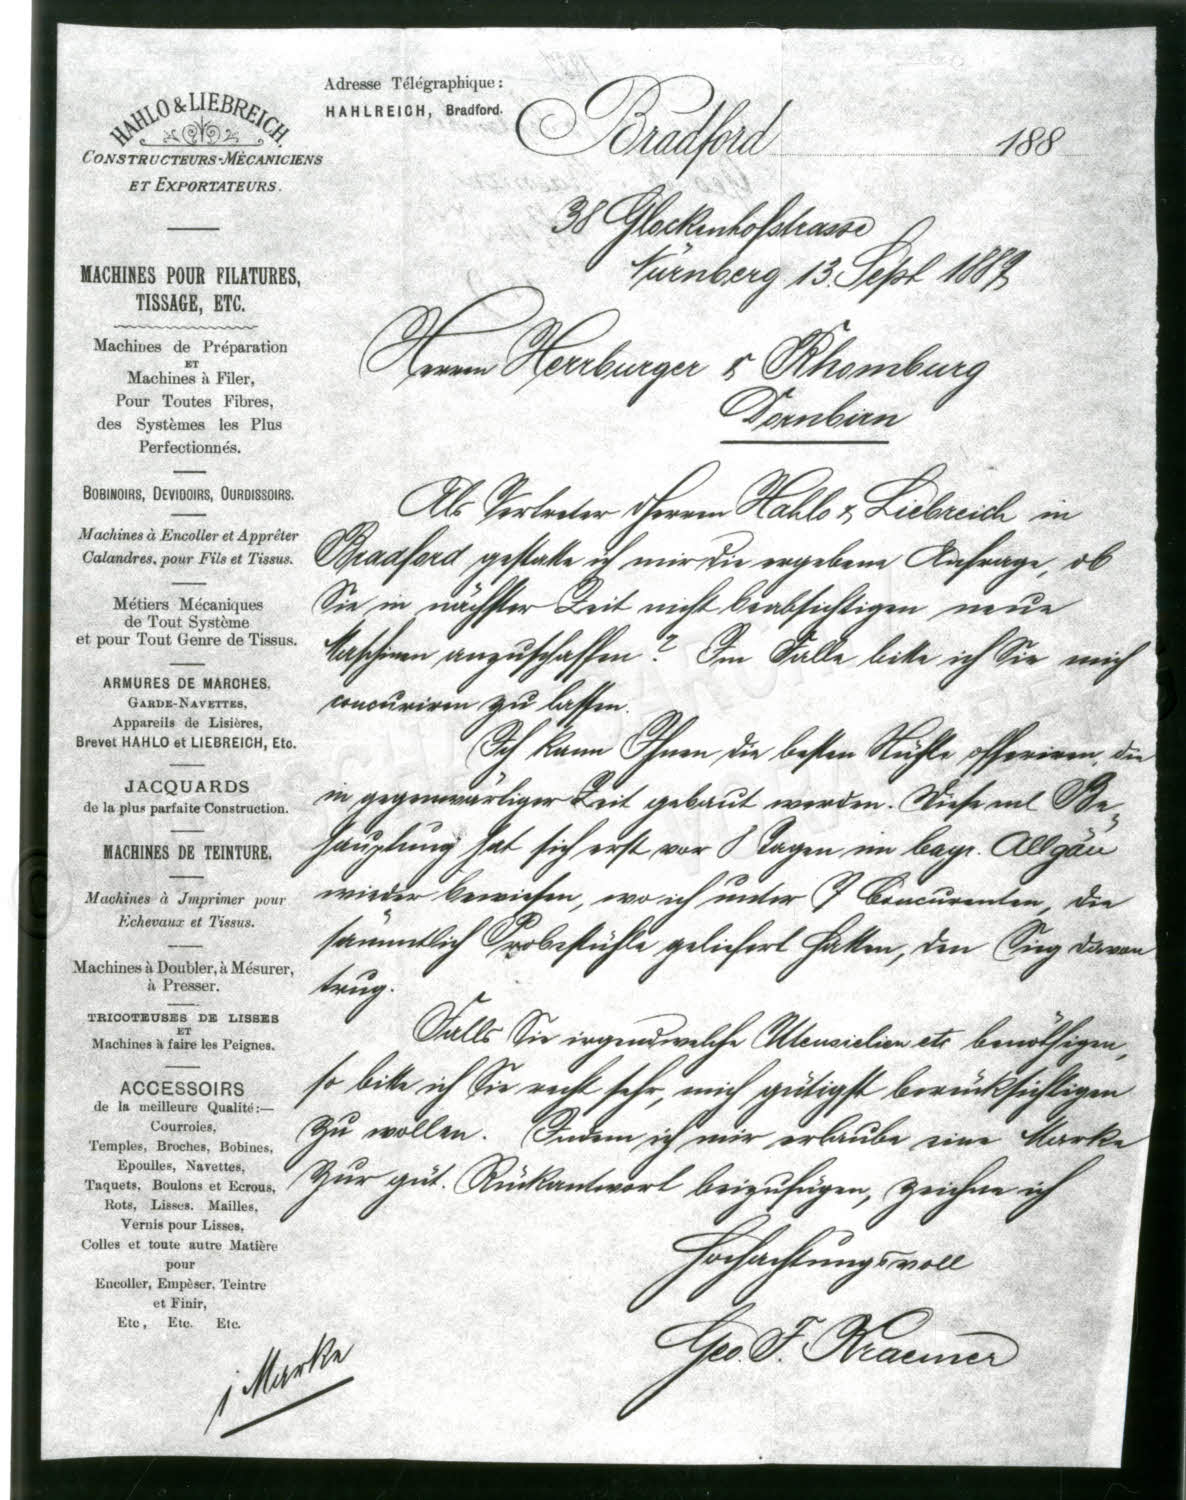 HAHLO & LIEBREICH.
CONSTRUCTEURS-MÉCANICIENS
ET EXPORTATEURS.
MACHINES POUR FILATURES,
TISSAGE, ETC.
Machines de Préparation
ET
Machines à Filer,
Pour Toutes Fibres,
des Systèmes les Plus
Perfectionnés.
BOBINOIRS, DEVIDOIRS, OURDISSOIRS.
Machines à Encoller et Apprêter
Calandres, pour Fils et Tissus.
Métiers Mécaniques
de Tout Système
et pour Tout Genre de Tissus.
ARMURES DE MARCHES.
GARDE-NAVETTES,
Appareils de Lisières,
Brevet HAHLO et LIEBREICH, Etc.
JACQUARDS
de la plus parfaite Construction.
MACHINES DE TEINTURE.
Machines à Jmprimer pour
Echevaux et Tissus.
Machines à Doubler, à Mésurer,
à Presser.
TRICOTEUSES DE LISSES
ET
Machines à faire les Peignes.
ACCESSOIRS
de la meilleure Qualité:—
Courroies,
Temples, Broches, Bobines,
Epoulles, Navettes,
Taquets, Boulons et Ecrous,
Rots, Lisses. Mailles,
Vernis pour Lisses,
Colles et toute autre Matière
pour
Encoller, Empèser, Teinte
et Finir,
Etc, Etc. Etc.
Adresse Télégraphique:
HAHLREICH, Bradford.
Bradford 188
38 Glockenhofstrasse
Nürnberg 13. Sept 1889
Herren Herrburger & Rhomburg
Dornbirn
Als Vertreter d Herren Hahlo & Liebreich in
Bradford gestatte ich mir die ergebene Anfrage, ob
Sie in nächster Zeit nicht beabsichtigen neue
Maschinen anzuschaffen? Im Falle bitte ich Sie mich
concuriren zu lassen.
Ich kann Ihnen die besten Stühle offeriren, die
in gegenwärtiger Zeit gebaut werden. Diese Be-
hauptung hat sich erst vor 8 Tagen im bayr. Allgäu
wieder bewiesen, wo ich unter 7 Concurenten, die
sämmtlich Probestühle geliefert hatten, den Sieg davon
trug.
Falls Sie irgendwelche Utensielien etc benöthigen,
so bitte ich Sie recht sehr, mich gütigst berücksichtigen
zu wollen. Indem ich mir erlaube eine Marke
zur güt. Rückantwort beizufügen, zeichne ich
Hochachtungsvoll
Geo. F. Kraemer
1 Marke